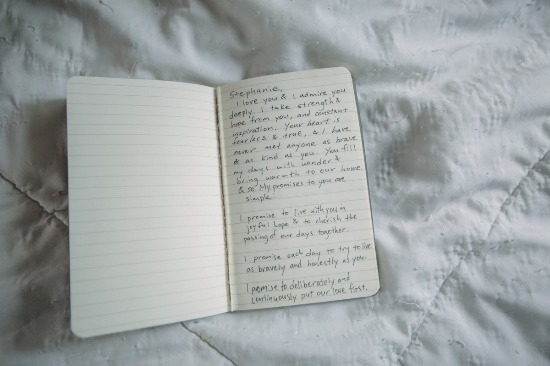 Stephanie,
I love you & I admire you
deeply. I take strength &
hope from you, and constant
inspiration. Your heart is
fearless & true, & I have
never met anyone as brave
& as kind as you. You fill
my days with wonder &
bring warmth to our home
& so my promises to you are
simple.
I promise to live with you in
joyful hope & to cherish the
passing of our days together.
I promise each day to try to live
as bravely and honestly as you.
I promise to deliberately and
continuously put our love first.